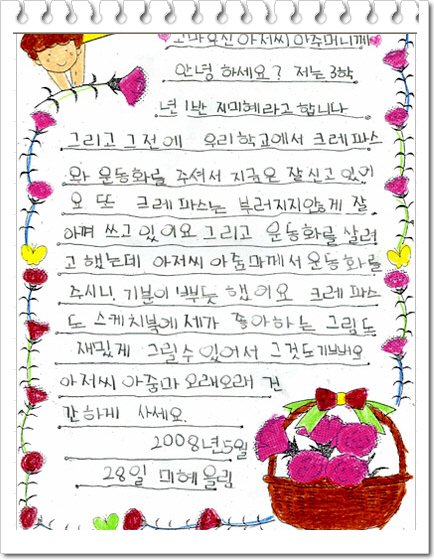 고마우신 아저씨 아주머니께
안녕 하세요? 저는 3학
년 1반 지미혜라고 합니다
그리고 그전에 우리학교에서 크레파스
와 운동화를 주셔서 지금은 잘신고 있어
요 또 크레파스는 부러지지않게 잘
아껴 쓰고 있어요 그리고 운동화를 살려
고 했는데 아저씨 아줌마께서 운동화를
주시니, 기분이 뿌듯 했어요 크레파스
도 스케치북에 제가 좋아하는 그림도
재밌게 그릴수 있어서 그것도 기뻐요
아저씨 아줌마 오래오래 건
강하게 사세요.
2008년 5월
28일 미혜 올림